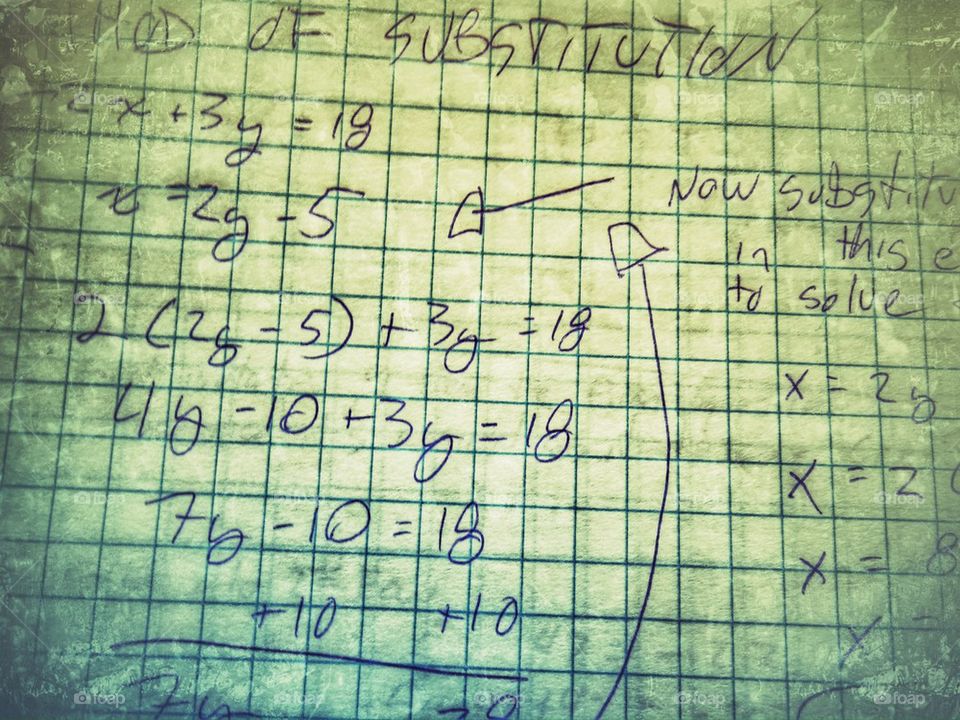 OF SUBSTITUTION
2x + 3y = 18
x = 2y - 5
2 (2y - 5) + 3y = 18
4y - 10 + 3y = 18
7y - 10 = 18
+10 +10
7y
Now substitu
in this e
to solve
x = 2y
x = 2 (
x = 8
x =